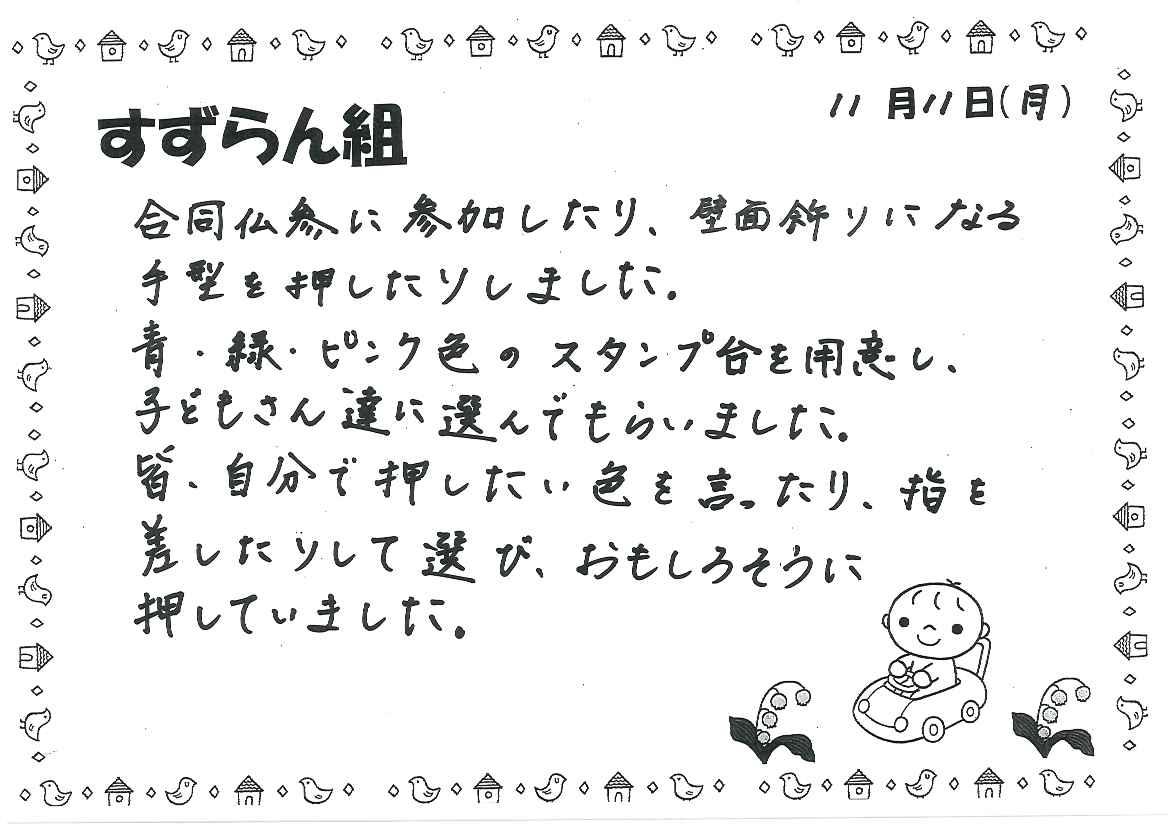 11月11日(月)
すずらん組
合同仏参に参加したり、壁面飾りになる
手型を押したりしました。
青・緑・ピンク色のスタンプ台を用意し、
子どもさん達に選んでもらいました。
皆、自分で押したい色を言ったり、指を
差したりして選び、おもしろそうに
押していました。